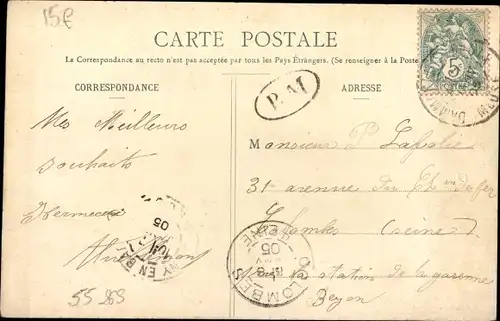 15€
CARTE POSTALE
La Correspondance au recto n'est pas acceptée par tous les Pays Étrangers. (Se renseigner à la Poste
CORRESPONDANCE
ADRESSE
B.M
5
MEUSE
Monsieur P Lafolie
Mes Meilleurs
souhaits
31 avenue du Ch in de fer
Colombes (Seine)
COLOMBES
SEINE
05
05
station de la garenne
Bezon
55 263